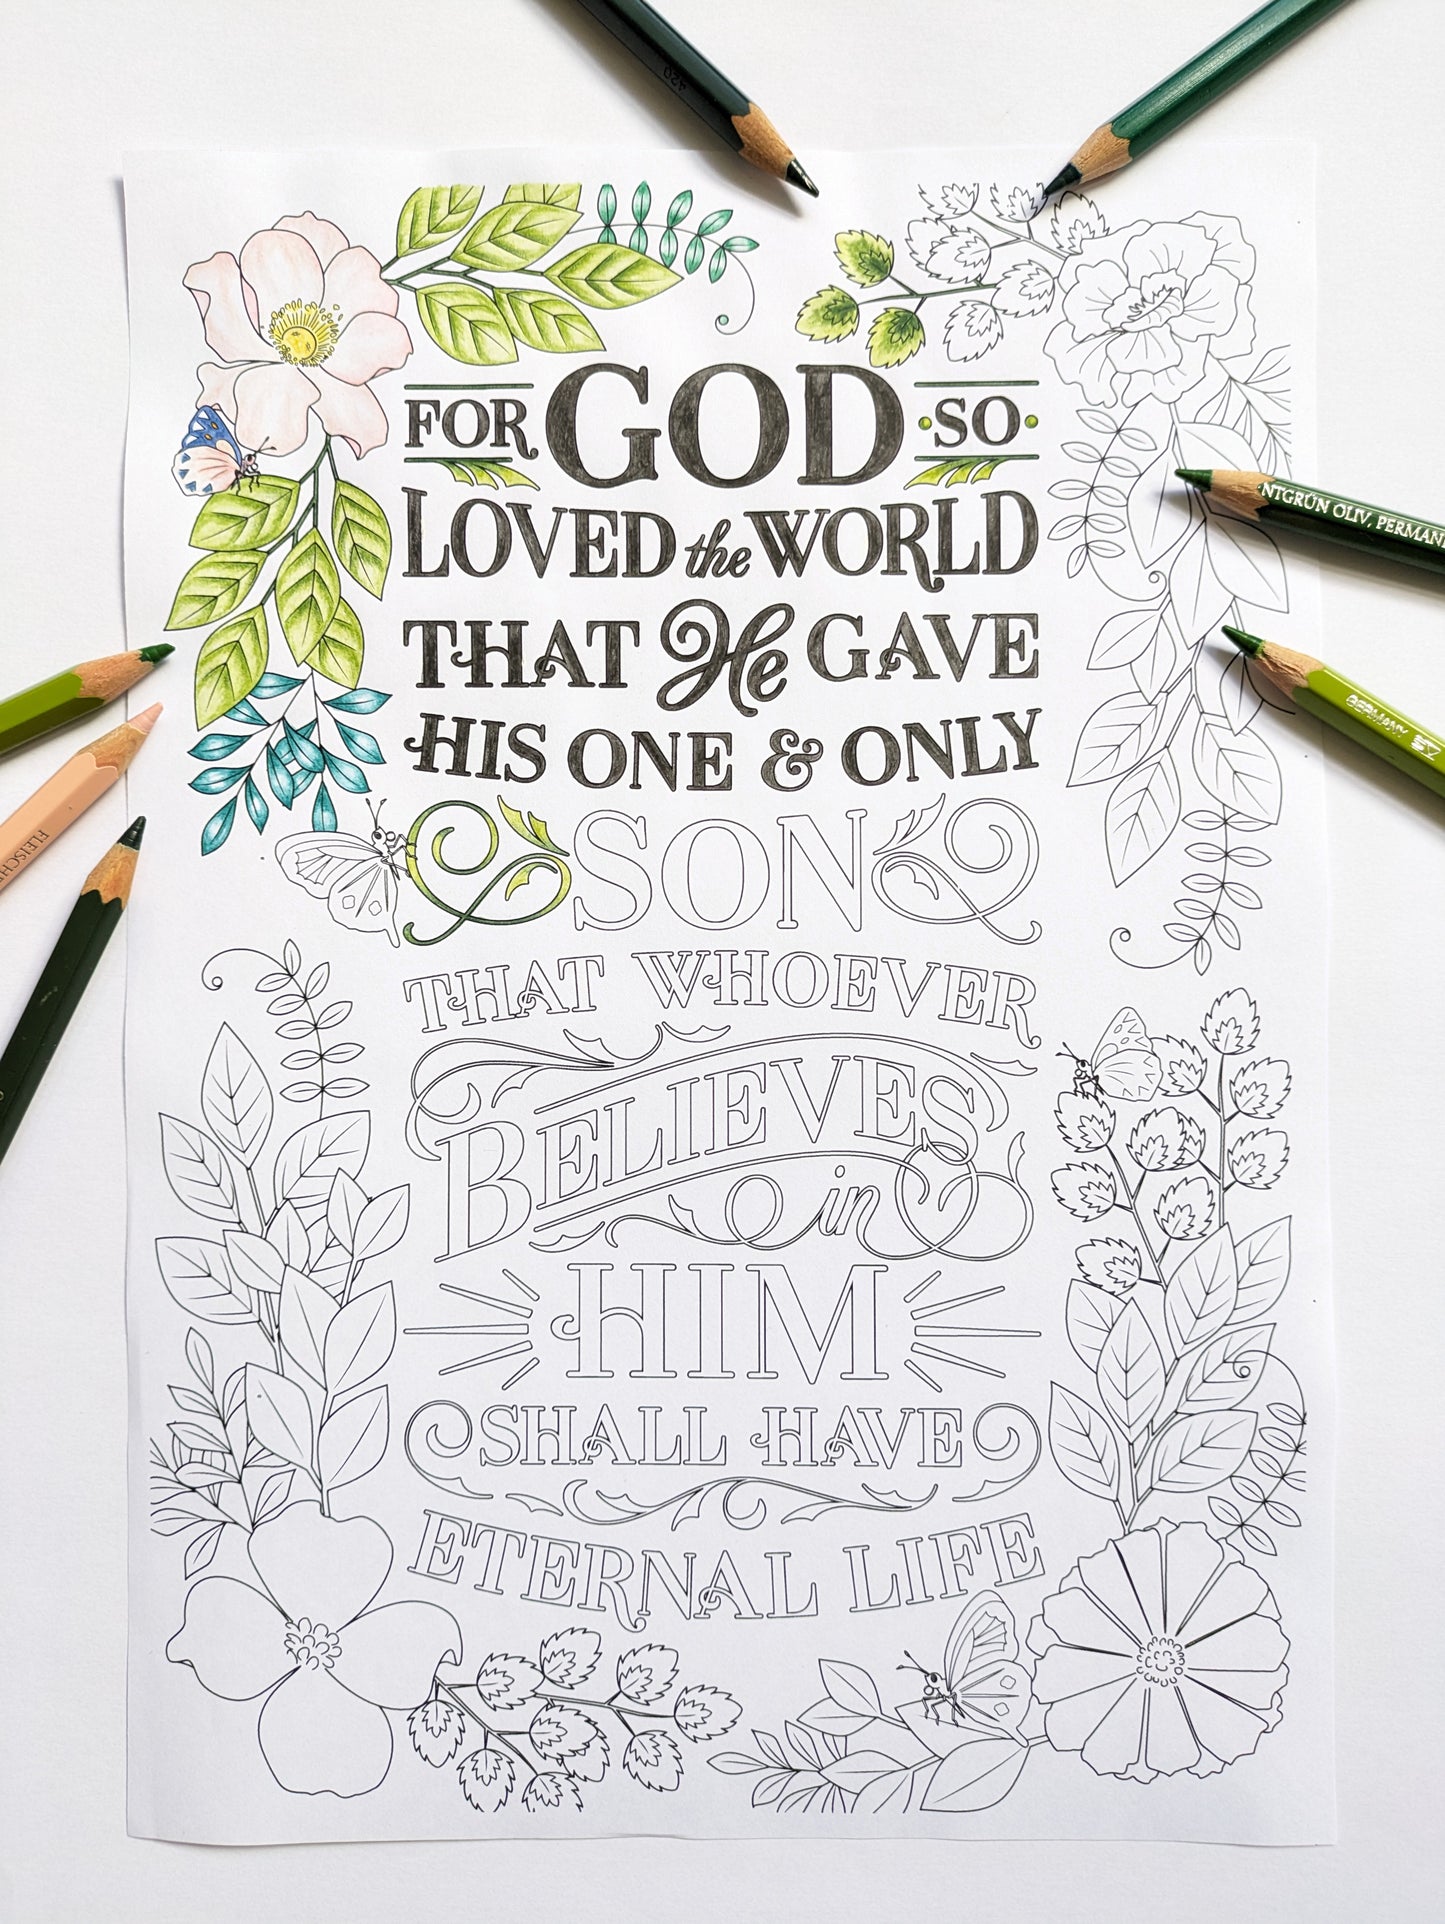 420
FOR GOD SO
LOVED the WORLD
NTGRÜN OLIV, PERMAN
THAT He GAVE
GERMANY
HIS ONE & ONLY
SON
FLEISCH
THAT WHOEVER
BELIEVES
in
HIM
SHALL HAVE
ETERNAL LIFE